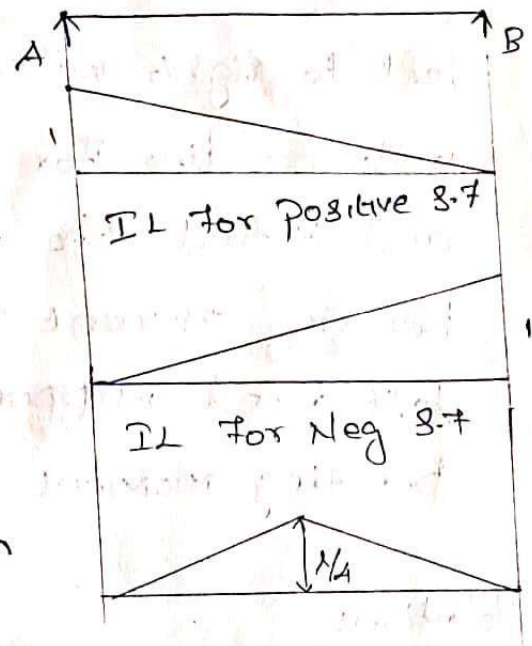 A B
1
IL for Positive S.F
1
IL For Neg S.F
λ/4